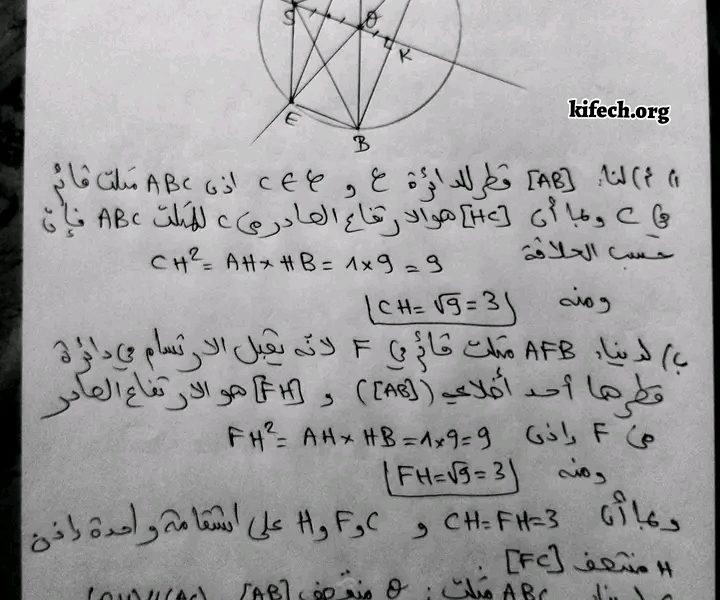 S
O
K
E
B
kifech.org
1) أ) لنا: [AB] قطر للدائرة ع و C ∈ ع اذن ABC مثلث قائم
في C وبما أن [HC] هو الارتفاع الصادر من C للمثلث ABC فإنّ
حسب العلاقة CH² = AH × HB = 1 × 9 = 9
ومنه CH = √9 = 3
ب) لدينا: AFB مثلث قائم في F لانّه يقبل الارتسام في دائرة
قطرها أحد أضلاعه ([AB]) و [FH] هو الارتفاع الصادر
من F إذن FH² = AH × HB = 1 × 9 = 9
ومنه FH = √9 = 3
وبما أن CH = FH = 3 و C و F و H على استقامة واحدة إذن
H منتصف [FC]
ABC مثلث : O منتصف [AB]